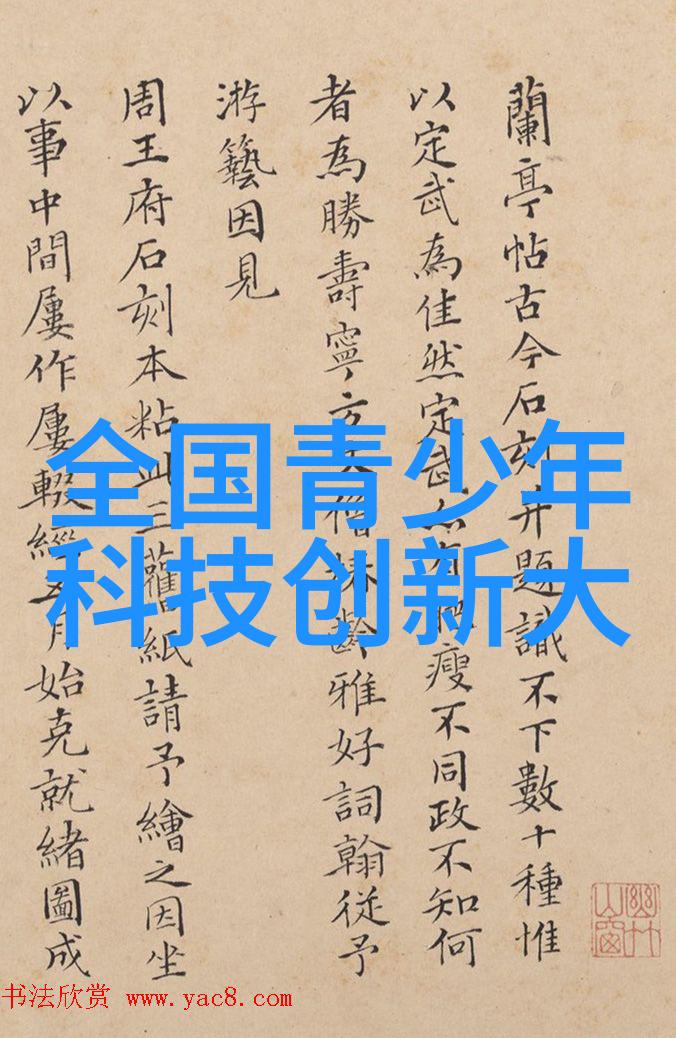 蘭亭帖古今石刻并題識不下數十種惟
以定武為佳然定武亦有肥瘦不同政不知何
者為勝壽寧方齡雅好詞翰從予
游藝因見
周王府石刻本粘此三舊紙請予繪之因坐
以事中間屢作屢輟經五月始克就緒圖成
幽竹
山窗
全国青少年
科技创新大
书法欣赏 www.yac8.com